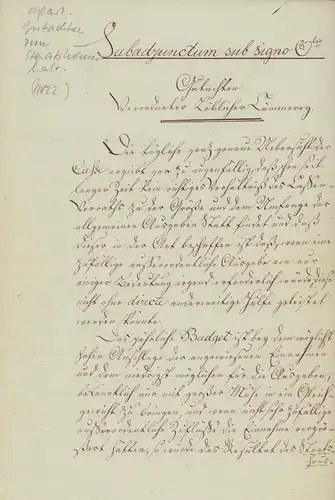 apart.
Gutachten
zum
Staatshaus
halt.
(1822)
Subadjunctum sub signo
Gutachten
Verordneter Löblicher Cämmerey.
Die tägliche ganz genaue Uebersicht der
Casse ergibt gar zu augenfällig, daß schon seit
langer Zeit kein richtiges Verhältniß des Casse-
Vorraths zu der Größe und dem Umfange der
allgemeinen Ausgaben Statt findet und daß
dieser in der Art beschaffen ist daß, wenn eine
zufällige außerordentliche Ausgabe von nur
einiger Bedeutung irgend erforderlich würde diese
nicht ohne directe anderweitige Hülfe geleistet
werden könnte.
Das jährliche Budget ist bey dem möglichst
hohen Anschlage der angewiesenen Einnahmen
und dem niedrigst möglichen für die Ausgaben,
bekanntlich nur mit großer Mühe in ein Gleich-
gewicht zu bringen, und wenn nicht sehr zufällige
außerordentliche Zuflüsse die Einnahme vergrö-
ßert hätten, so würde das Resultat des Staats-
Haus-